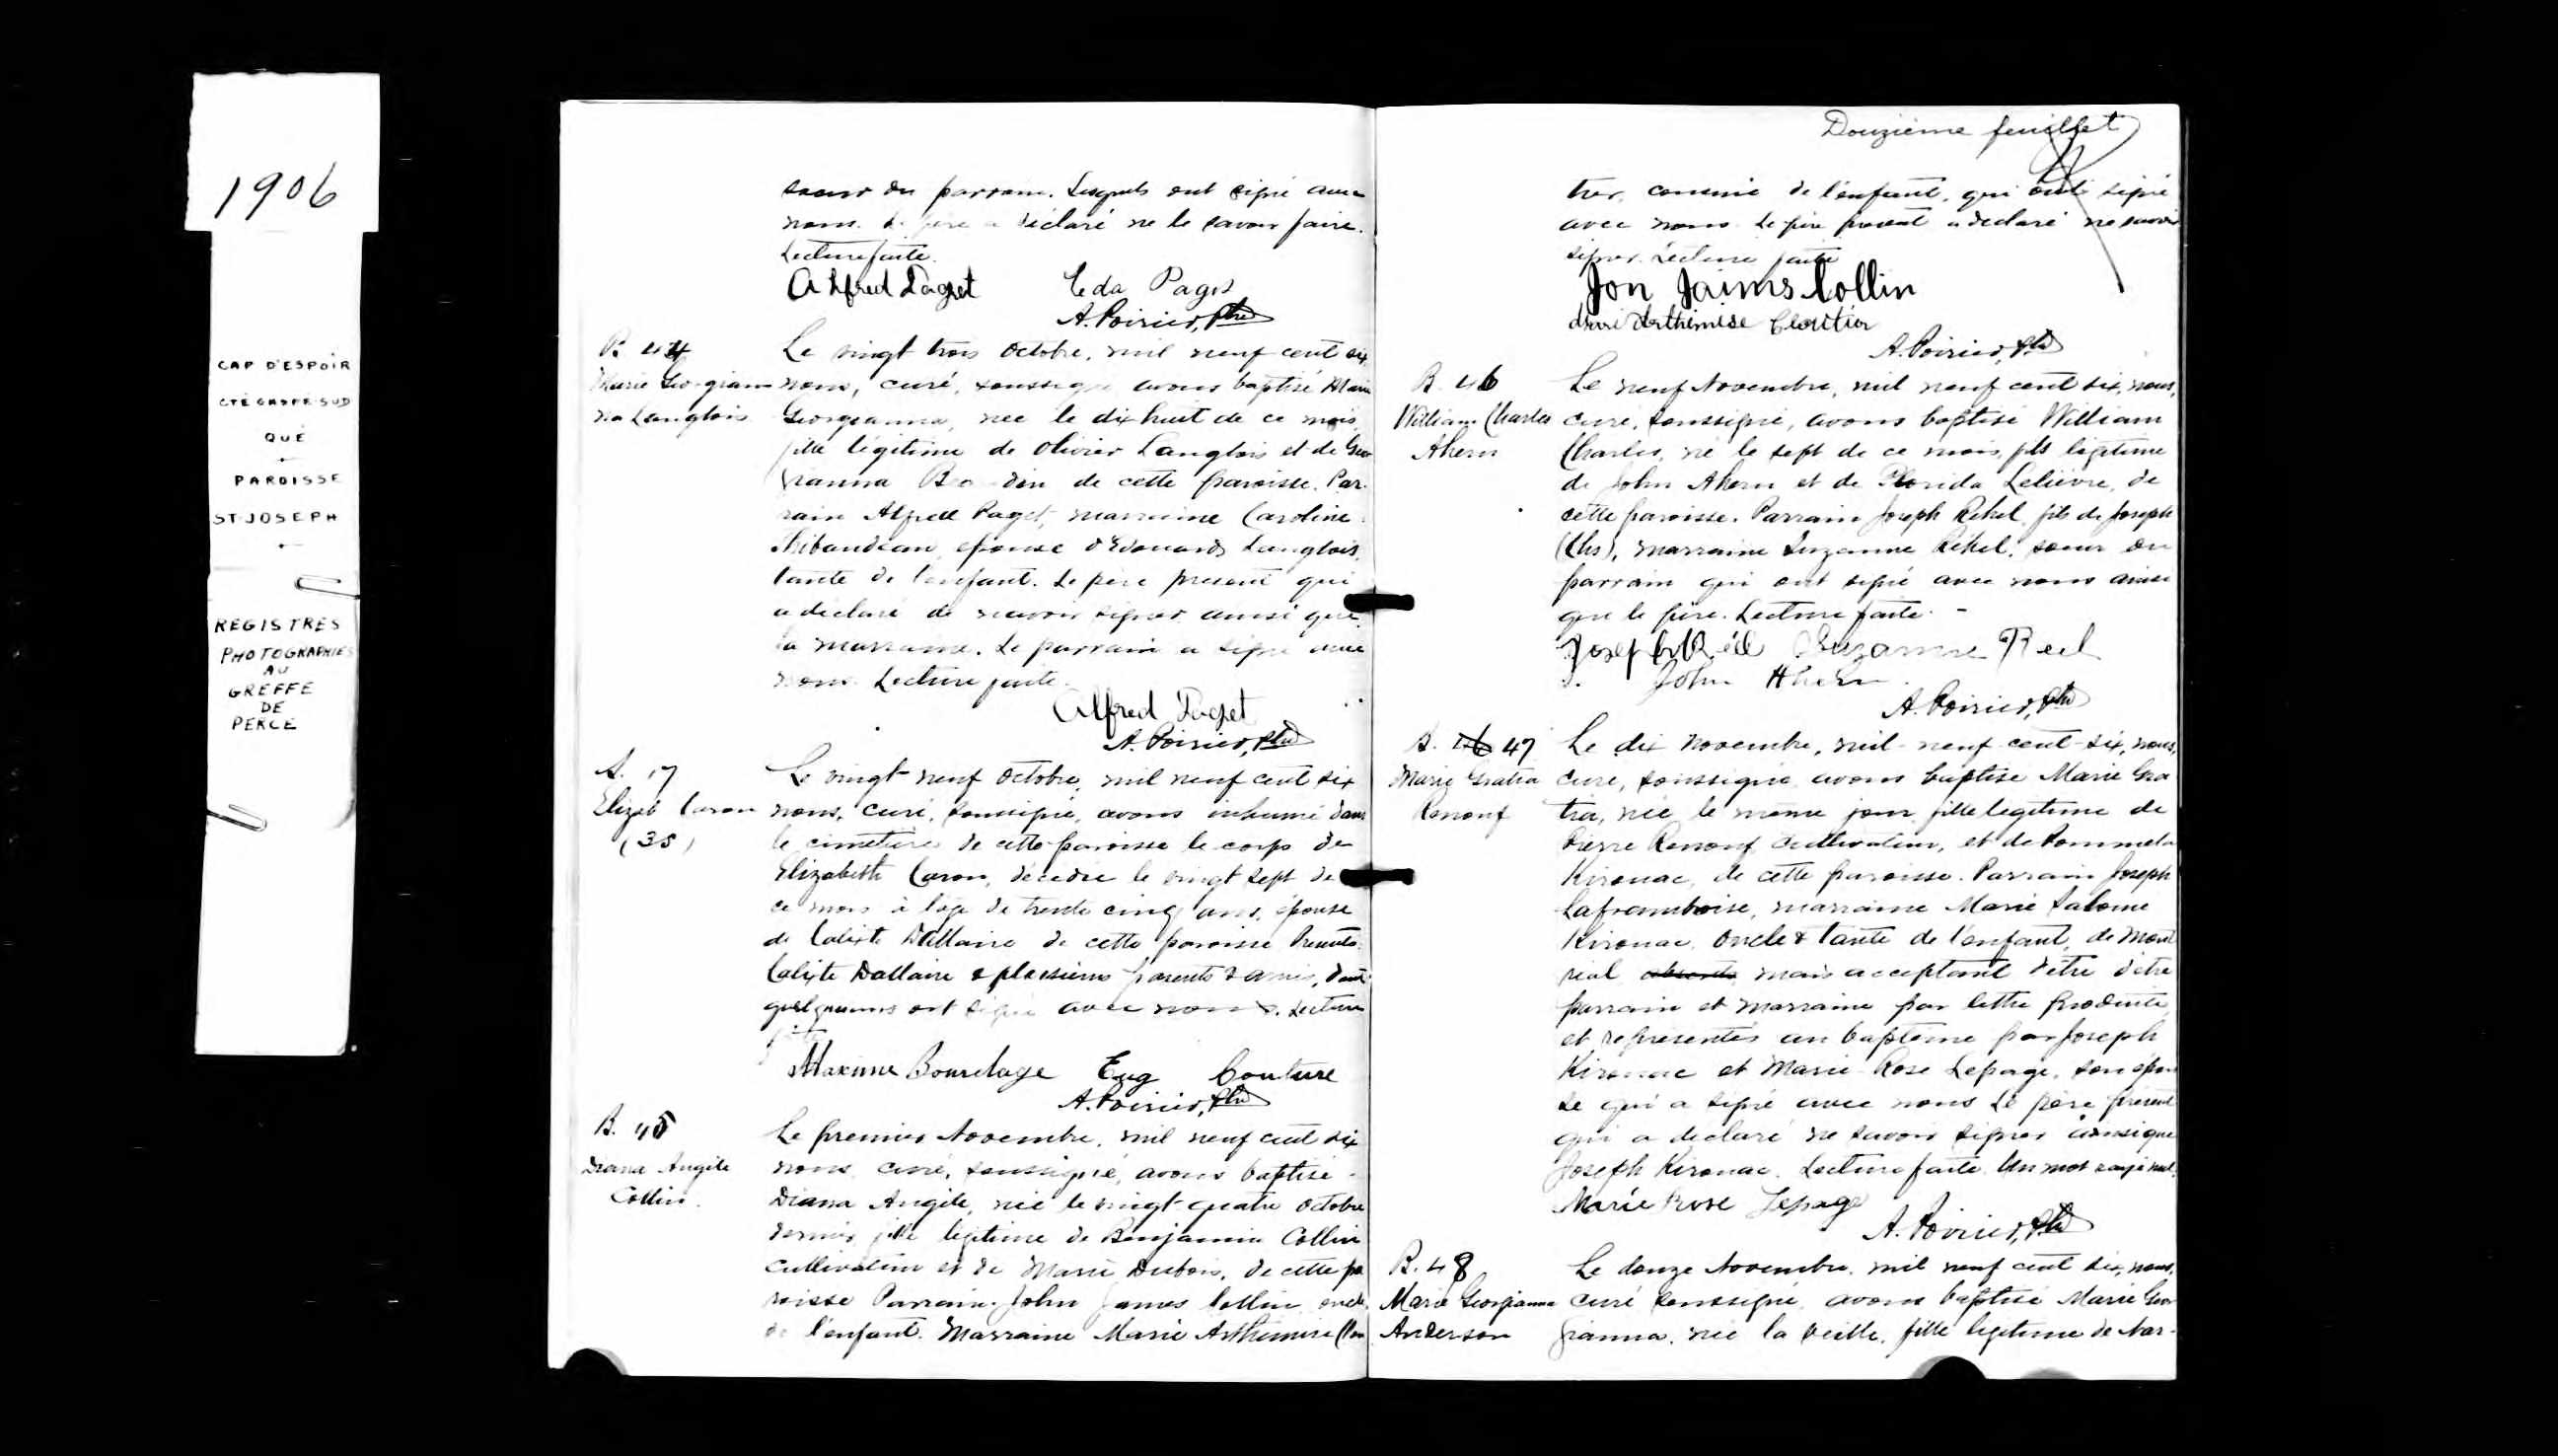 1906
CAP D'ESPOIR
CTÉ GASPÉ-SUD
QUÉ
PAROISSE
ST-JOSEPH
REGISTRES
PHOTOGRAPHIES
AU
GREFFE
DE
PERCE
soeur du parrain. Lesquels ont signé avec
nous. Le père a déclaré ne le savoir faire.
Lecture faite.
Alfred Paget Eda Paget
A. Poirier, Ptre
B. 44
Marie Georgian
na Langlois
Le vingt trois Octobre, mil neuf cent six
nous, curé, soussigné avons baptisé Marie
Georgeanna, née le dix huit de ce mois,
fille légitime de Olivier Langlois et de Geor
gianna de cette paroisse. Par-
rain Alfred Paget, marraine Caroline
Thibaudeau, épouse d'Edouard Langlois,
tante de l'enfant. Le père présent qui
a déclaré ne savoir signer ainsi que
la marraine. Le parrain a signé avec
nous. Lecture faite.
Alfred Paget
A. Poirier, Ptre
S. 17
Elizab Caron
(35)
Le vingt-neuf Octobre, mil neuf cent six
nous, curé, soussigné, avons inhumé dans
le cimetière de cette paroisse le corps de
Elizabeth Caron, décédée le vingt sept de
ce mois à l'âge de trente cinq ans, épouse
de Calixte Dallaire de cette paroisse Présents:
Calixte Dallaire & plusieurs parents & amis, dont
quelques uns ont signé avec nous. Lecture
faite.
Maxime Bourdage Eug Couture
A. Poirier, Ptre
B. 45
Diana Angile
Collin.
Le premier Novembre, mil neuf cent six
nous, curé, soussigné, avons baptisé
Diana Angile, née le vingt-quatre Octobre
dernier, fille légitime de Benjamin Collin
cultivateur et de Marie Dubois, de cette pa
roisse Parrain John James Collin oncle
de l'enfant. Marraine Marie Arthémise Clou
Douzième feuillet
tier, cousine de l'enfant, qui ont signé
avec nous. Le père présent a déclaré ne savoir
signer. Lecture faite
Jon Jaims Collin
Marie Arthémise Cloutier
A. Poirier, Ptre
B. 46
William Charles
Ahern
Le neuf Novembre, mil neuf cent six, nous,
curé, soussigné, avons baptisé William
Charles, né le sept de ce mois, fils légitime
de John Ahern et de Florida Lelièvre, de
cette paroisse. Parrain Joseph Réhel, fils de Joseph
(Chs), marraine Suzanne Réhel, soeur du
parrain qui ont signé avec nous ainsi
que le père. Lecture faite. -
Joseph Réél Suzanne Reel
John Ahern.
A. Poirier, Ptre
B. 46 47
Marie Gratia
Renouf
Le dix Novembre, mil-neuf-cent-six, nous,
curé, soussigné, avons baptisé Marie Gra
tia, née le même jour, fille légitime de
Pierre Renouf cultivateur, et de
Kirouac, de cette paroisse. Parrain Joseph
Laframboise, marraine Marie Salome
Kirouac, oncle & tante de l'enfant, de Mont
réal absents mais acceptant d'être d'être
parrain et marraine par lettre produite,
et représentés au baptême par Joseph
Kirouac et Marie Rose Lepage, son épou
se qui a signé avec nous Le père présent
qui a déclaré ne savoir signer ainsi que
Joseph Kirouac. Lecture faite. Un mot rayé nul.
Marie Rose Lepage
A. Poirier, Ptre
B. 48
Marie Georgianna
Anderson
Le douze Novembre, mil neuf cent six, nous,
curé soussigné, avons baptisé Marie Geor
gianna, née la veille, fille légitime de Nar-